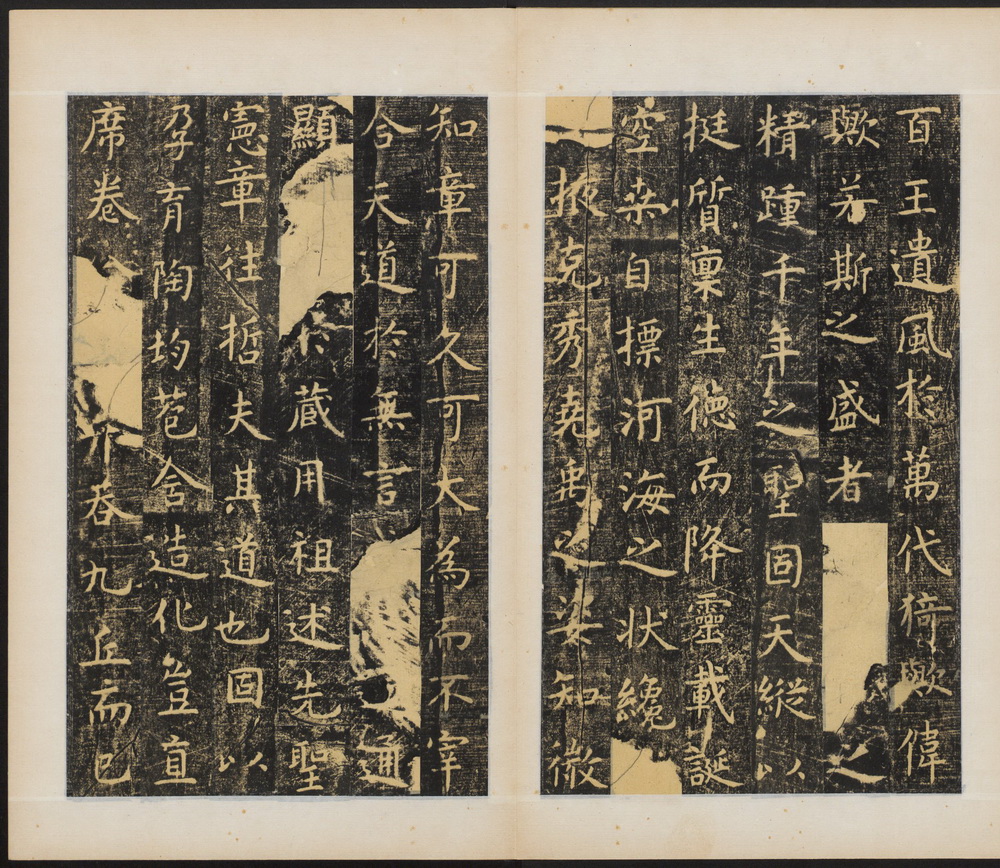 百王遺風於萬代猗歟偉
歟若斯之盛者之
精踵千年之聖固天縱以
挺質稟生徳而降靈載誕
空桒自標河海之状纔
掖克秀堯禹之姿知微
知章可久可大為而不宰
合天道於無言通
顯於藏用祖述先聖
憲章往哲夫其道也固以
孕育陶均苞含造化豈直
席卷吞九丘而已